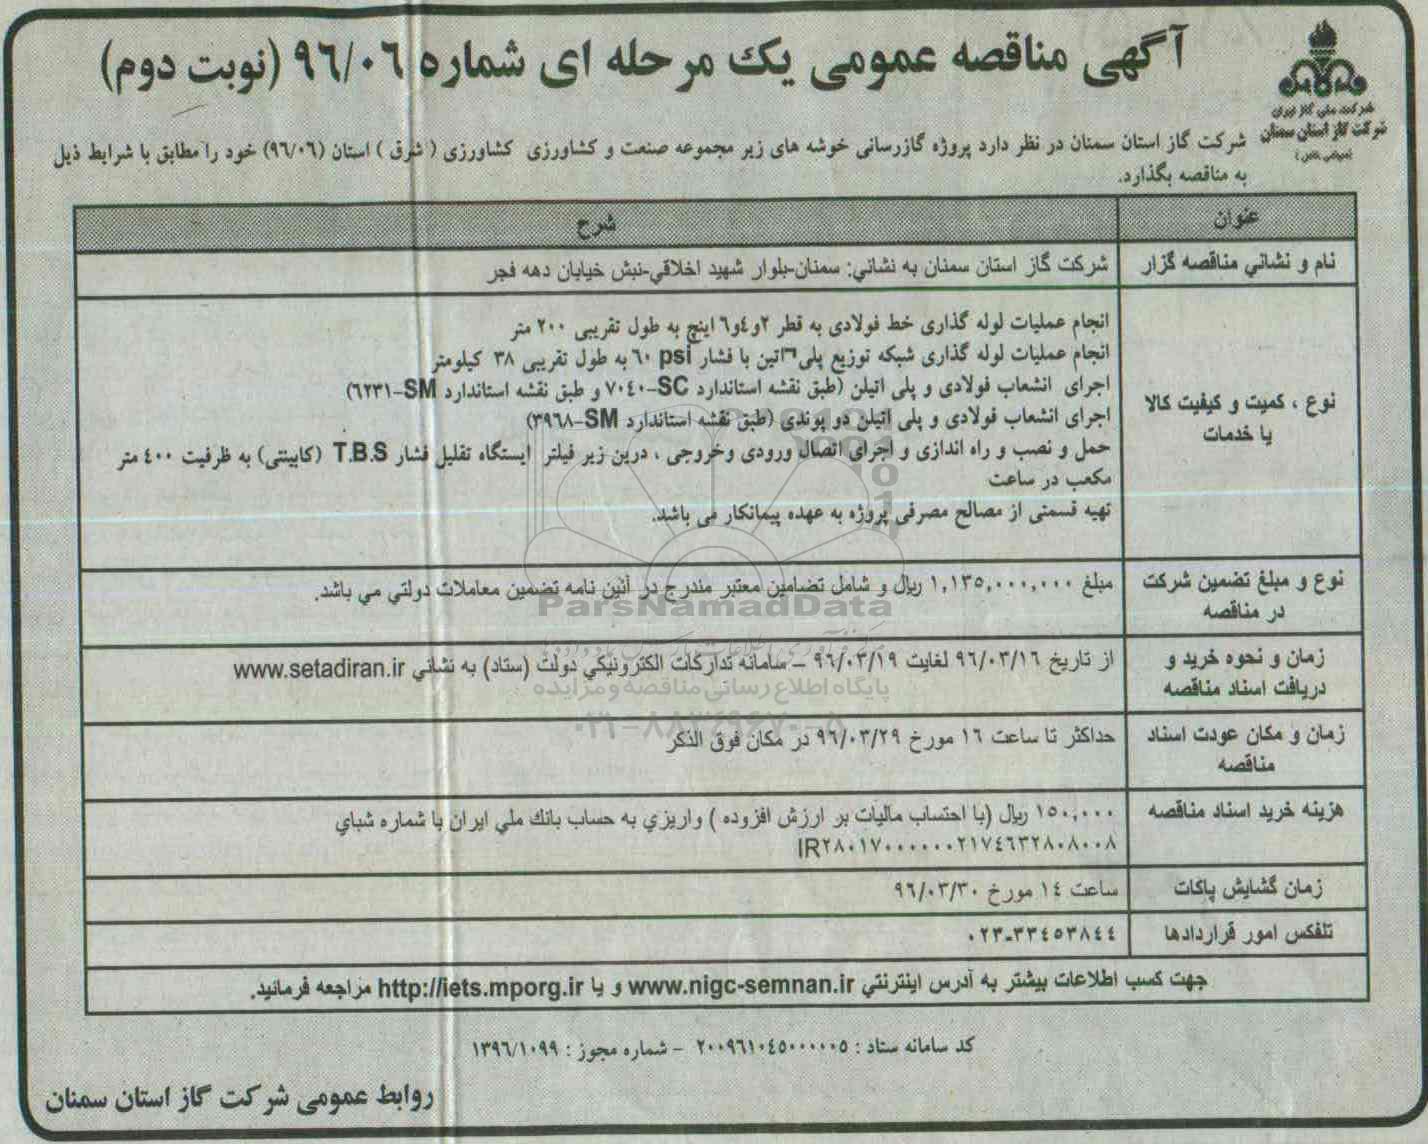 آگهی مناقصه عمومی یک مرحله ای شماره ۹۶/۰۶ (نوبت دوم)
شرکت ملی گاز ایران
شرکت گاز استان سمنان
(سهامی خاص)
شرکت گاز استان سمنان در نظر دارد پروژه گازرسانی خوشه های زیر مجموعه صنعت و کشاورزی کشاورزی ( شرق ) استان (۹۶/۰۶) خود را مطابق با شرایط ذیل
به مناقصه بگذارد.
عنوان
شرح
نام و نشاني مناقصه گزار
شرکت گاز استان سمنان به نشاني: سمنان-بلوار شهيد اخلاقي-نبش خيابان دهه فجر
نوع ، کمیت و کیفیت کالا
یا خدمات
انجام عملیات لوله گذاری خط فولادی به قطر ۲و٤و٦ اینچ به طول تقریبی ۲۰۰ متر
انجام عملیات لوله گذاری شبکه توزیع پلی اتین با فشار ٦٠ psi به طول تقریبی ۳۸ کیلومتر
اجرای انشعاب فولادی و پلی اتیلن (طبق نقشه استاندارد SC-۷۰٤۰ و طبق نقشه استاندارد SM-٦٢٣١)
اجرای انشعاب فولادی و پلی اتیلن دو پوندی (طبق نقشه استاندارد SM-۳۹٦۸)
حمل و نصب و راه اندازی و اجرای اتصال ورودی وخروجی ، درین زیر فیلتر ایستگاه تقلیل فشار T.B.S (کابینتی) به ظرفیت ٤۰۰ متر
مکعب در ساعت
تهیه قسمتی از مصالح مصرفی پروژه به عهده پیمانکار می باشد.
نوع و مبلغ تضمین شرکت
در مناقصه
مبلغ ۱,۱۳۵,۰۰۰,۰۰۰ ریال و شامل تضامین معتبر مندرج در آئین نامه تضمین معاملات دولتي مي باشد.
ParsNamadData
زمان و نحوه خرید و
دریافت اسناد مناقصه
از تاریخ ۹٦/۰۳/۱٦ لغایت ۹٦/۰۳/۱۹ – سامانه تدارکات الکترونیکي دولت (ستاد) به نشاني www.setadiran.ir
پایگاه اطلاع رسانی مناقصه و مزایده
۰۲۱-۸۸۳۴۹۶۷۰-۵
زمان و مکان عودت اسناد
مناقصه
حداکثر تا ساعت ۱٦ مورخ ۹٦/۰۳/۲۹ در مکان فوق الذکر
هزینه خرید اسناد مناقصه
۱۵۰,۰۰۰ ریال (با احتساب مالیات بر ارزش افزوده ) واریزي به حساب بانك ملي ایران با شماره شباي
IR۲۸۰۱۷۰۰۰۰۰۰۰۲۱۷٤٦۳۲۸۰۸۰۰۸
زمان گشایش پاکات
ساعت ۱٤ مورخ ۹٦/۰۳/۳۰
تلفکس امور قراردادها
۰۲۳-۳۳٤۵۳۸٤٤
جهت کسب اطلاعات بیشتر به آدرس اینترنتي www.nigc-semnan.ir و یا http://iets.mporg.ir مراجعه فرمائید.
کد سامانه ستاد : ۲۰۰۹٦۱۰٤۵۰۰۰۰۰۵ - شماره مجوز : ۱۳۹٦/۱۰۹۹
روابط عمومی شرکت گاز استان سمنان